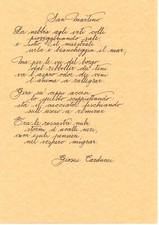 San Martino
La nebbia agli irti colli
piovigginando sale,
e sotto il maestrale
urla e biancheggia il mar;
Ma per le vie del borgo
dal ribollir de' tini
va l'aspro odor dei vini
l'anime a rallegrar.
Gira su' ceppi accesi
lo spiedo scoppiettando:
sta il cacciator fischiando
sull'uscio a rimirar
Tra le rossastre nubi
stormi d'uccelli neri,
com'esuli pensieri,
nel vespero migrar.
Giosuè Carducci